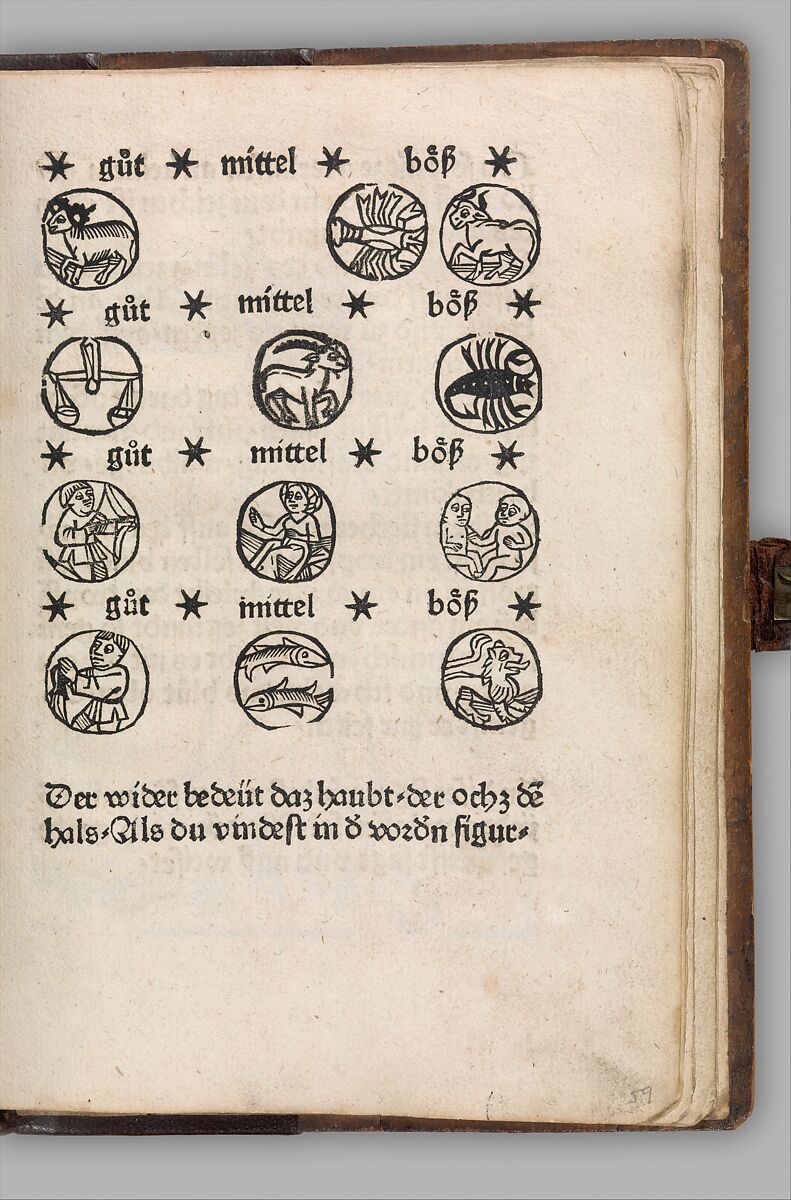 * gůt * mittel * bo̊ß *
* gůt * mittel * bo̊ß *
* gůt * mittel * bo̊ß *
* gůt * mittel * bo̊ß *
Der wider bedeüt daz haubt⸗der ochz dē
hals⸗Als du vindest in d̄ vord̄n figur⸗
59